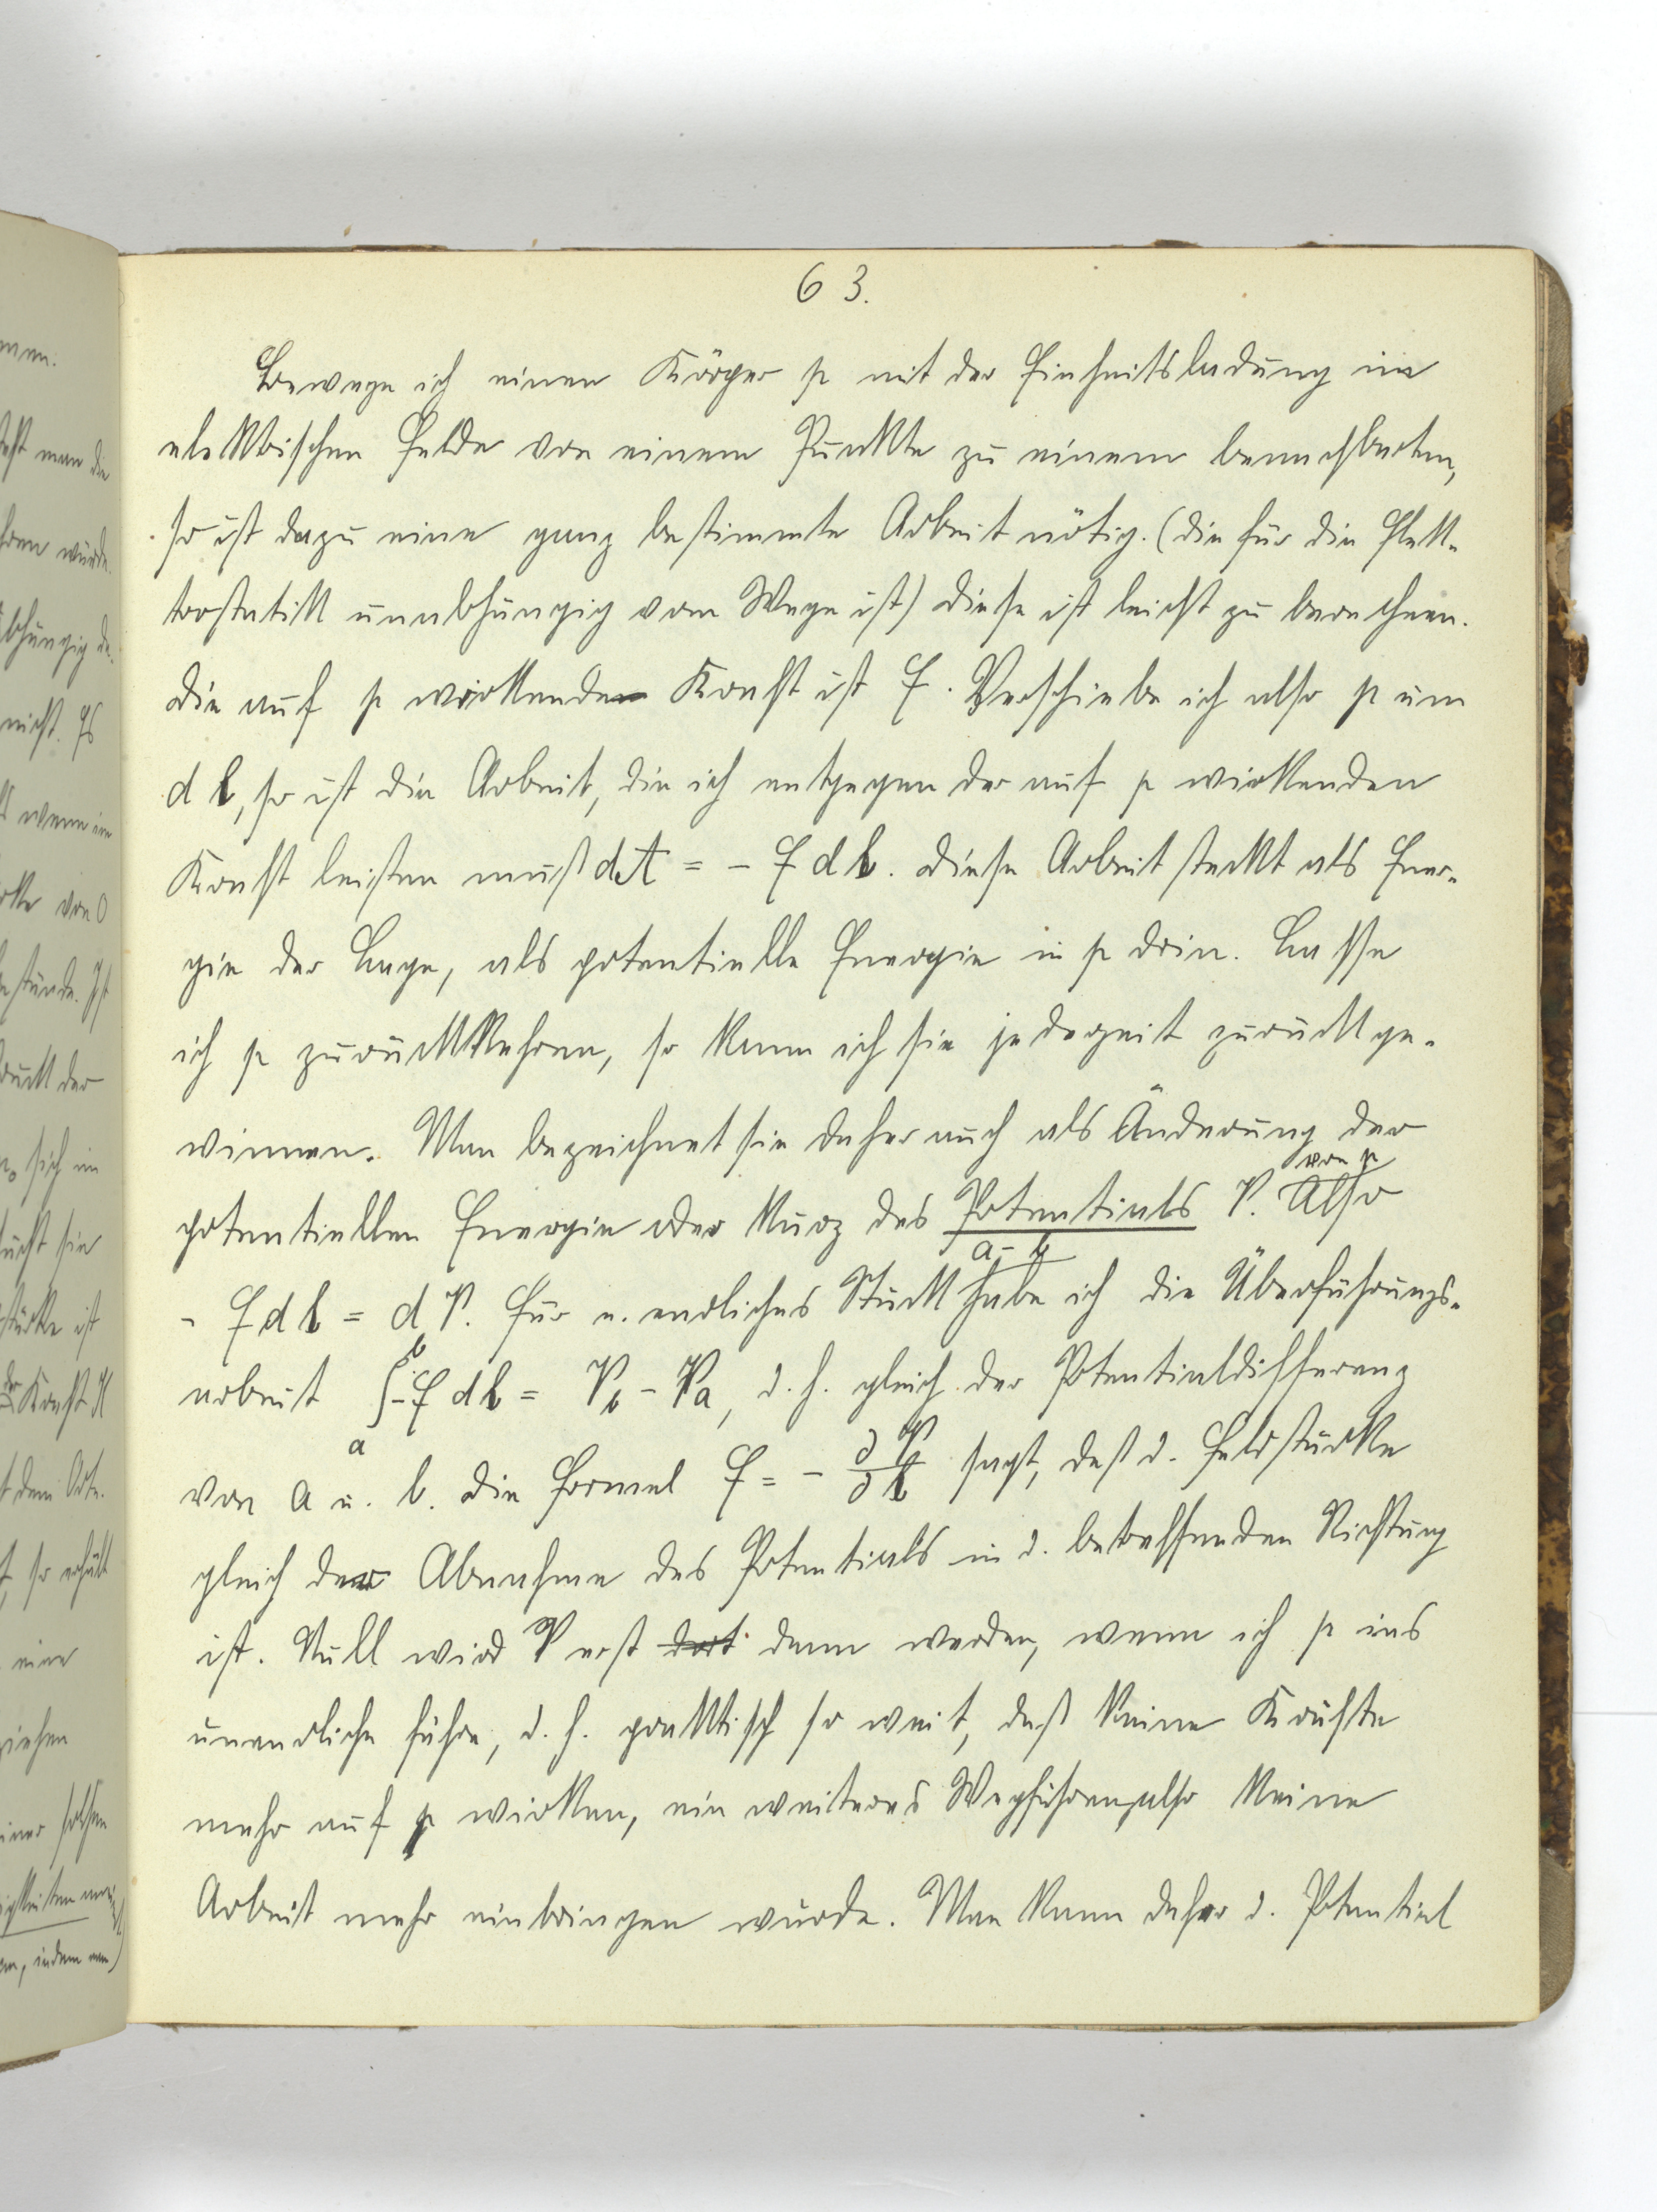 63.
Bewege ich einen Körper p mit der Einheitsladung im
elektrischen Felde von einem Punkte zu einem benachbarten,
so ist dazu eine ganz bestimmte Arbeit nötig. (die für die Elek-
trostatik unabhängig vom Wege ist) Diese ist leicht zu berechnen.
Die auf p wirkende Kraft ist E. Verschiebe ich also p um
d l, so ist die Arbeit, die ich entgegen der auf p wirkenden
Kraft leisten muß dA = - E d l. Diese Arbeit steckt als Ener-
gie der Lage, als potentielle Energie in p drin. Lasse
ich p zurückkehren, so kann ich sie jederzeit zurückge-
winnen. Man bezeichnet sie daher auch als Änderung der
potentiellen Energie oder kurz des Potentials V. von p Also
- E d l = d V. Für e. endliches Stück a-b habe ich die Überführungs-
arbeit ∫ₐᵇ - E d l = V_b - V_a, d. h. gleich der Potentialdifferenz
von a u. b. Die Formel E = - ∂V/∂l sagt, daß d. Feldstärke
gleich der Abnahme des Potentials in d. betreffenden Richtung
ist. Null wird V erst dort dann werden, wenn ich p ins
unendliche führe, d. h. praktisch so weit, daß keine Kräfte
mehr auf p wirken, ein weiteres Wegführen also keine
Arbeit mehr einbringen würde. Man kann daher d. Potential